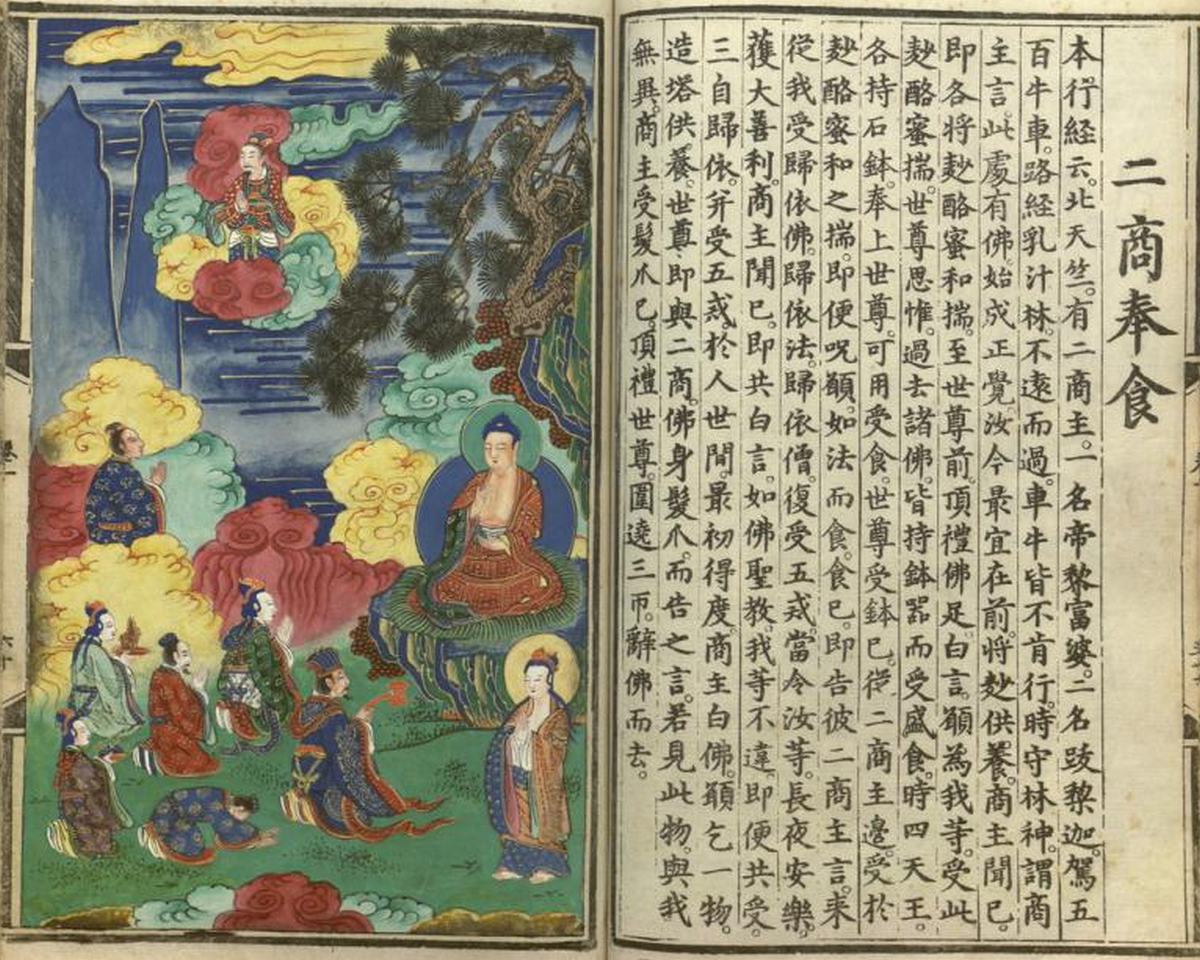 二商奉食
本行経云。北天竺。有二商主。一名帝黎富婆。二名跋黎迦。駕五
百牛車。路經乳汁林。不遠而過。車牛皆不肯行。時守林神。謂商
主言。此處有佛。始成正覺。汝今最宜在前。將麨供養。商主聞已。
即各将麨酪蜜和揣。至世尊前。頂禮佛足。白言。願為我等。受此
麨酪蜜揣。世尊思惟。過去諸佛。皆持鉢器而受盛食。時四天王。
各持石鉢。奉上世尊。可用受食。世尊受鉢已。從二商主邊。受於
麨酪蜜和之揣。即便呪願。如法而食。食已。即告彼二商主言。来
從我受歸依佛。歸依法。歸依僧。復受五戒。當令汝等。長夜安樂。
獲大善利。商主聞已。即共白言。如佛聖教。我等不違。即便共受。
三自歸依。并受五戒。於人世間。最初得度。商主白佛。願乞一物。
造塔供養。世尊。即與二商。佛身髮爪。而告之言。若見此物。與我
無異。商主受髮爪已。頂禮世尊。圍遶三帀。辭佛而去。